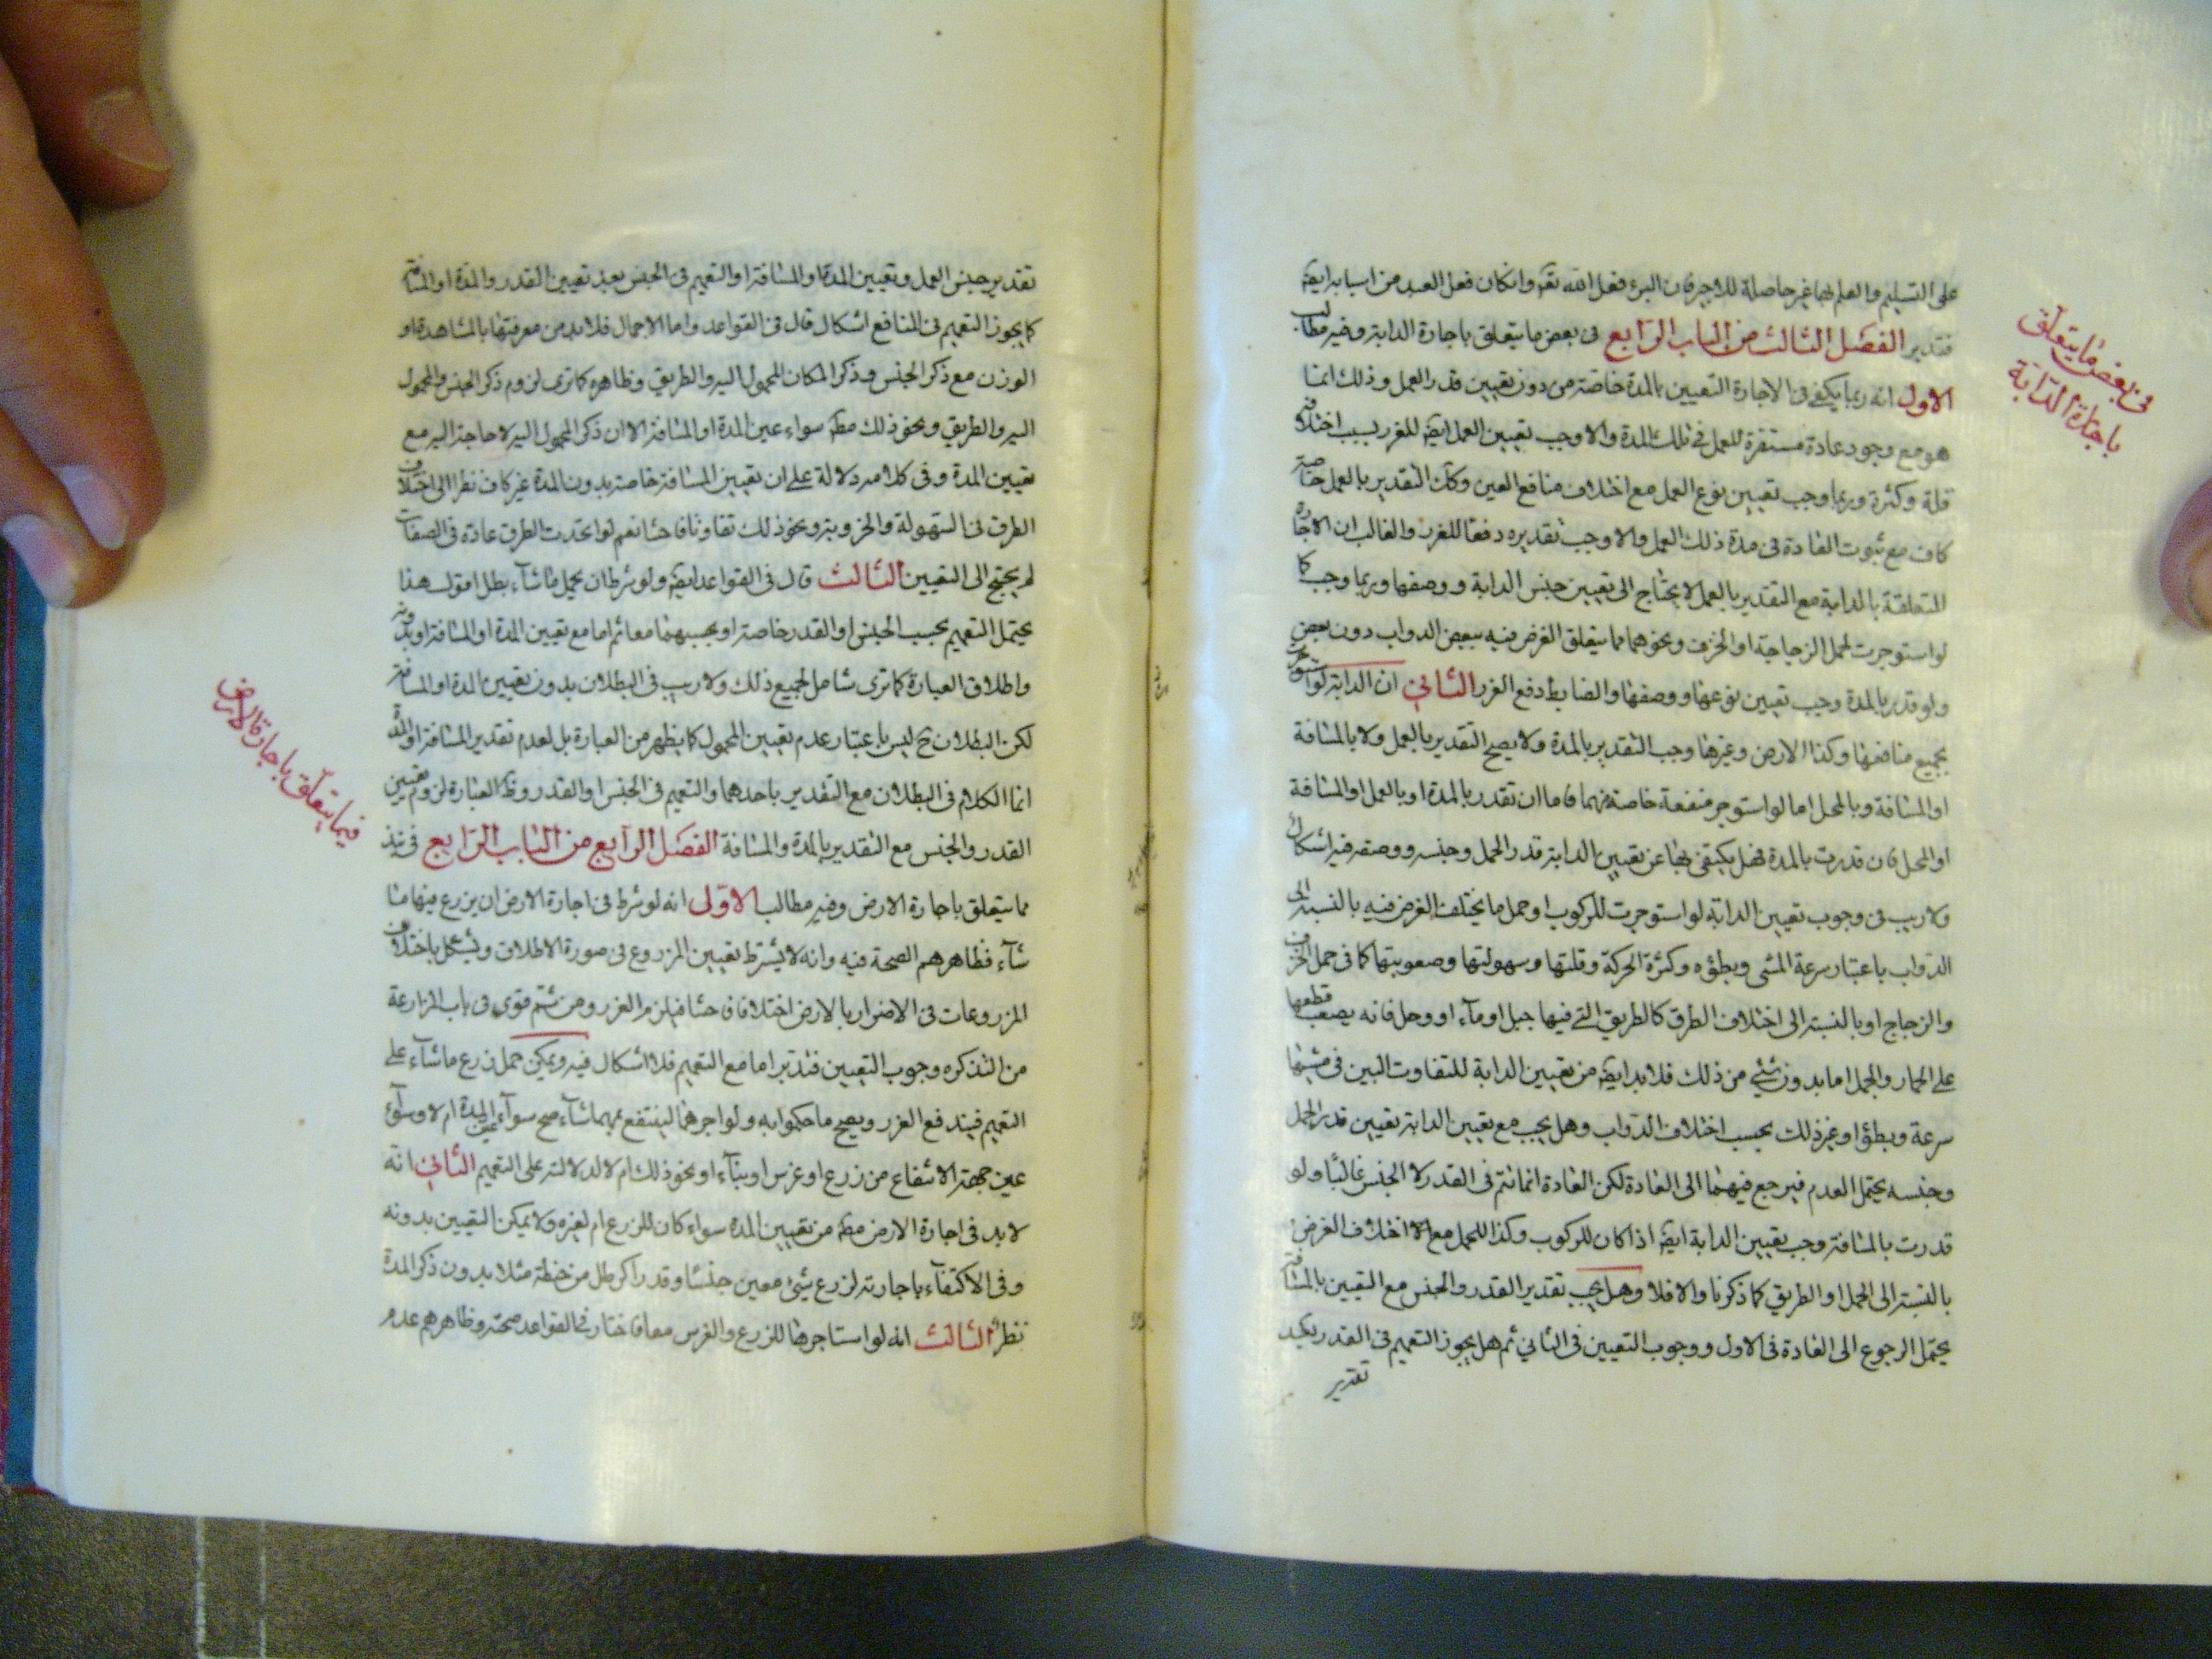 على التسليم والعلم بها غير حاصلة للاجير فان البرء فعل الله تعه وانكان فعل العبد من اسبابه ايضه
فتدبر الفصل الثالث من الباب الرابع فى بعض ما يتعلق باجارة الدابة وفيه مطالب
الاول انه ربما يكفى فى الاجارة التعيين بالمدة خاصة من دون تعيين قدر العمل وذلك انما
هو مع وجود عادة مستقرة للعمل فى تلك المدة والا وجب تعيين العمل ايضه للغرر بسبب اختلافه
قلة وكثرة وربما وجب تعيين نوع العمل مع اختلاف منافع العين وكك التقدير بالعمل خاصة
كاف مع ثبوت العادة فى مدة ذلك العمل والا وجب تقديره دفعا للغرر والغالب ان الاجارة
المتعلقة بالدابة مع التقدير بالعمل لا يحتاج الى تعيين جنس الدابة ووصفها وربما وجب كما
لو استوجرت لحمل الزجاجة او الخزف ونحوهما مما يتعلق الغرض فيه ببعض الدواب دون بعض
ولو قدر بالمدة وجب تعيين نوعها ووصفها والضابط دفع الغرر الثانى ان الدابة لو استوجر
بجميع منافعها وكذا الارض وغيرها وجب التقدير بالمدة ولا يصح التقدير بالعمل ولا بالمسافة
او المسافة وبالمحل اما لو استوجر منفعة خاصة منهما فاما ان تقدر بالمدة او بالعمل او المسافة
او المحل فان قدرت بالمدة فهل يكتفى بها عن تعيين الدابة قدر الحمل وجنسه ووصفه فيه اشكال
ولا ريب فى وجوب تعيين الدابة لو استوجرت للركوب او حمل ما يختلف الغرض فيه بالنسبة الى
الدواب باعتبار سرعة المشى وبطؤه وكثرة الحركة وقلتها وسهولتها وصعوبتها كما فى حمل الخزف
والزجاج او بالنسبة الى اختلاف الطرق كالطريق التى فيها جبل او ماء او وحل فانه يصعب قطعها
على الحمار والجمل اما بدون شئ من ذلك فلا بد ايضه من تعيين الدابة للتفاوت البين فى مشيها
سرعة وبطؤا وغير ذلك بحسب اختلاف الدواب وهل يجب مع تعيين الدابة تعيين قدر الحمل
وجنسه يحتمل العدم فيرجع فيهما الى العادة لكن العادة انما تتم فى القدر لا الجنس غالبا ولو
قدرت بالمسافة وجب تعيين الدابة ايضه اذا كان للركوب وكذا للحمل مع الاختلاف الغرض
بالنسبة الى الحمل او الطريق كما ذكرنا والا فلا وهل يجب تقدير القدر والجنس مع التعيين بالمسافة
يحتمل الرجوع الى العادة فى الاول ووجوب التعيين فى الثانى ثم هل يجوز التعميم فى القدر بعد
تقدير
فى بعض ما يتعلق
باجارة الدابة
تقدير جنس العمل وتعيين المدة او المسافة او التعميم فى الجنس بعد تعيين القدر والمدة او المسافة
كما يجوز التعميم فى المنافع اشكال قال فى القواعد واما الاحمال فلا بد من معرفتها بالمشاهدة او
الوزن مع ذكر الجنس وذكر المكان المحمول اليه والطريق وظاهره كما ترى لزوم ذكر الجنس والمحمول
اليه والطريق ونحو ذلك مطه سواء عين المدة او المسافة الا ان ذكر المحمول اليه لا حاجة اليه مع
تعيين المدة وفى كلامه دلالة على ان تعيين المسافة خاصة بدون المدة غير كاف نظرا الى اختلاف
الطرق فى السهولة والحزونة ونحو ذلك تفاوتا فاحشا نعم لو اتحدت الطرق عادة فى الصفات
لم يحتج الى التعيين الثالث قال فى القواعد ايضه ولو شرط ان يحمل ما شاء بطل اقول هذا
يحتمل التعميم بحسب الجنس او القدر خاصة او بحسبهما معا ثم اما مع تعيين المدة او المسافة او بدونه
واطلاق العبارة كما ترى شامل لجميع ذلك ولا ريب فى البطلان بدون تعيين المدة او المسافة
لكن البطلان ح ليس باعتبار عدم تعيين المحمول كما يظهر من العبارة بل لعدم تقدير المسافة او المدة
انما الكلام فى البطلان مع التقدير باحدهما والتعميم فى الجنس او القدر وظه العبارة لزوم تعيين
القدر والجنس مع التقدير بالمدة والمسافة الفصل الرابع من الباب الرابع فى نبذ
مما يتعلق باجارة الارض وفيه مطالب الاول انه لو شرط فى اجارة الارض ان يزرع فيها ما
شاء فظاهرهم الصحة فيه وانه لا يشترط تعيين المزروع فى صورة الاطلاق ويشكل باختلاف
المزروعات فى الاضرار بالارض اختلافا فاحشا فيلزم الغرر ومن ثم قوى فى باب المزارعة
من التذكرة وجوب التعيين فتدبر اما مع التعميم فلا اشكال فيه ويمكن حمل زرع ما شاء على
التعميم فيندفع الغرر ويصح ما حكموا به ولو اجرها لينتفع بهما شاء صح سواء عين المدة ام لا وسواء
عين جهة الانتفاع من زرع او غرس او بناء او نحو ذلك ام لا لدلالته على التعميم الثانى انه
لا بد فى اجارة الارض مطه من تعيين المدة سواء كان للزرع ام لغيره ولا يمكن التعيين بدونه
وفى الاكتفاء باجارته لزرع شئ معين جنسا وقدرا كرطل من حنطة مثلا بدون ذكر المدة
نظر الثالث انه لو استاجرها للزرع والغرس معا فاختار فى القواعد صحته وظاهرهم عدم
فيما يتعلق باجارة الارض